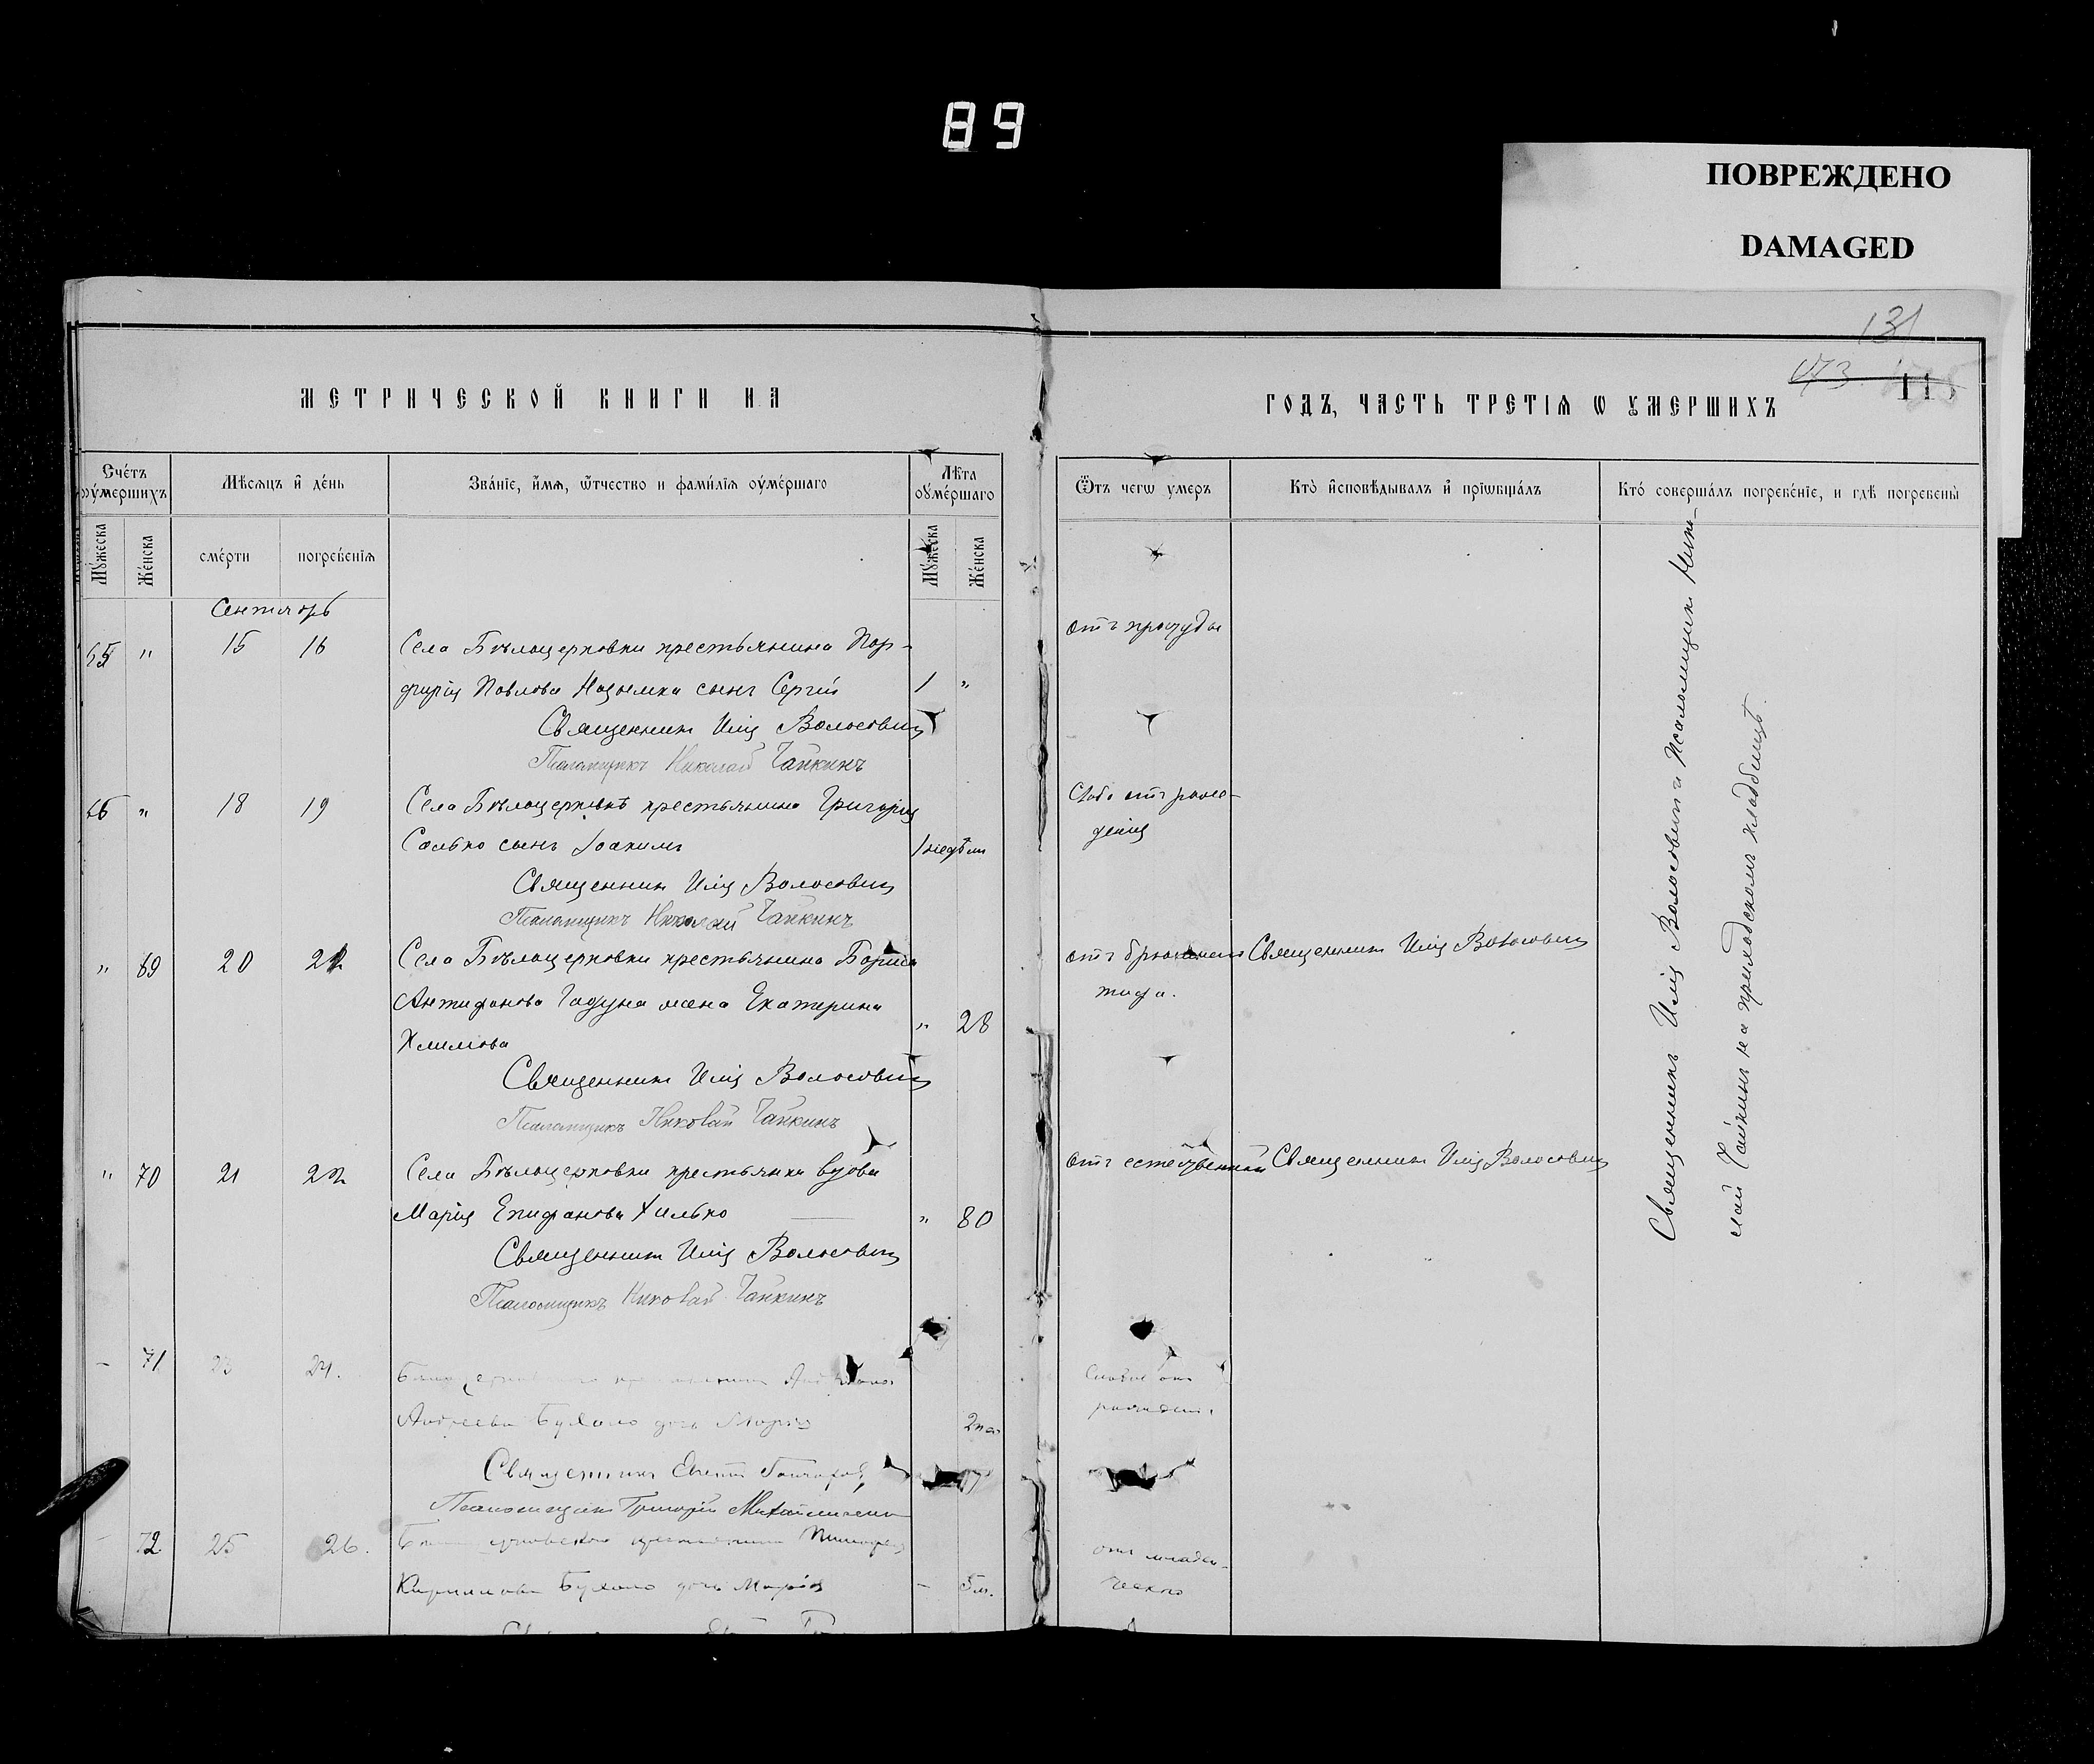 89
ПОВРЕЖДЕНО
DAMAGED
131
173
115
МЕТРИЧЕСКОЙ КНИГИ НА
ГОДЪ, ЧАСТЬ ТРЕТІЯ Ѡ ОУМЕРШИХЪ
Счетъ оумершихъ
Мѣсяцъ и день
Званіе, имя, отчество и фамилія оумершаго
Лѣта оумершаго
Ѿтъ чегѡ умеръ
Кто исповѣдывалъ и пріобщалъ
Кто совершалъ погребеніе, и гдѣ погребены
Мужеска
Женска
смерти
погребенія
Мужеска
Женска
Сентябрь
65 " 15 16 Села Бѣлоцерковки крестьянина Пор-
фирія Павлова сынъ Сергій 1 "
отъ простуды
Священникъ Илія Волосовичъ
Псаломщикъ Николай Чайкинъ
66 " 18 19 Села Бѣлоцерковки крестьянина Григорія
сынъ Іоакимъ 1 недѣли
Слабо отъ рож-
денія
Священникъ Илія Волосовичъ
Псаломщикъ Николай Чайкинъ
" 69 20 22 Села Бѣлоцерковки крестьянина Бориса
Антифанова Гадуна жена Екатерина
Климова " 28
отъ брюшнаго
тифа.
Священникъ Илія Волосовичъ
Священникъ Илія Волосовичъ
Псаломщикъ Николай Чайкинъ
" 70 21 22 Села Бѣлоцерковки крестьянка вдова
Марія Епифанова Хилько " 80
Священникъ Илія Волосовичъ
Священникъ Илія Волосовичъ
Псаломщикъ Николай Чайкинъ
Священникъ Илія Волосовичъ и Псаломщикъ Нико-
лай Чайкинъ на приходскомъ кладбищѣ.
- 71 23 24.
Андреева дочь Марія
Слабая отъ
рожденія
Священникъ
Псаломщикъ Григорій
- 72 25 26.
Кириллова дочь Марія - 5 м.
отъ младен-
ческой